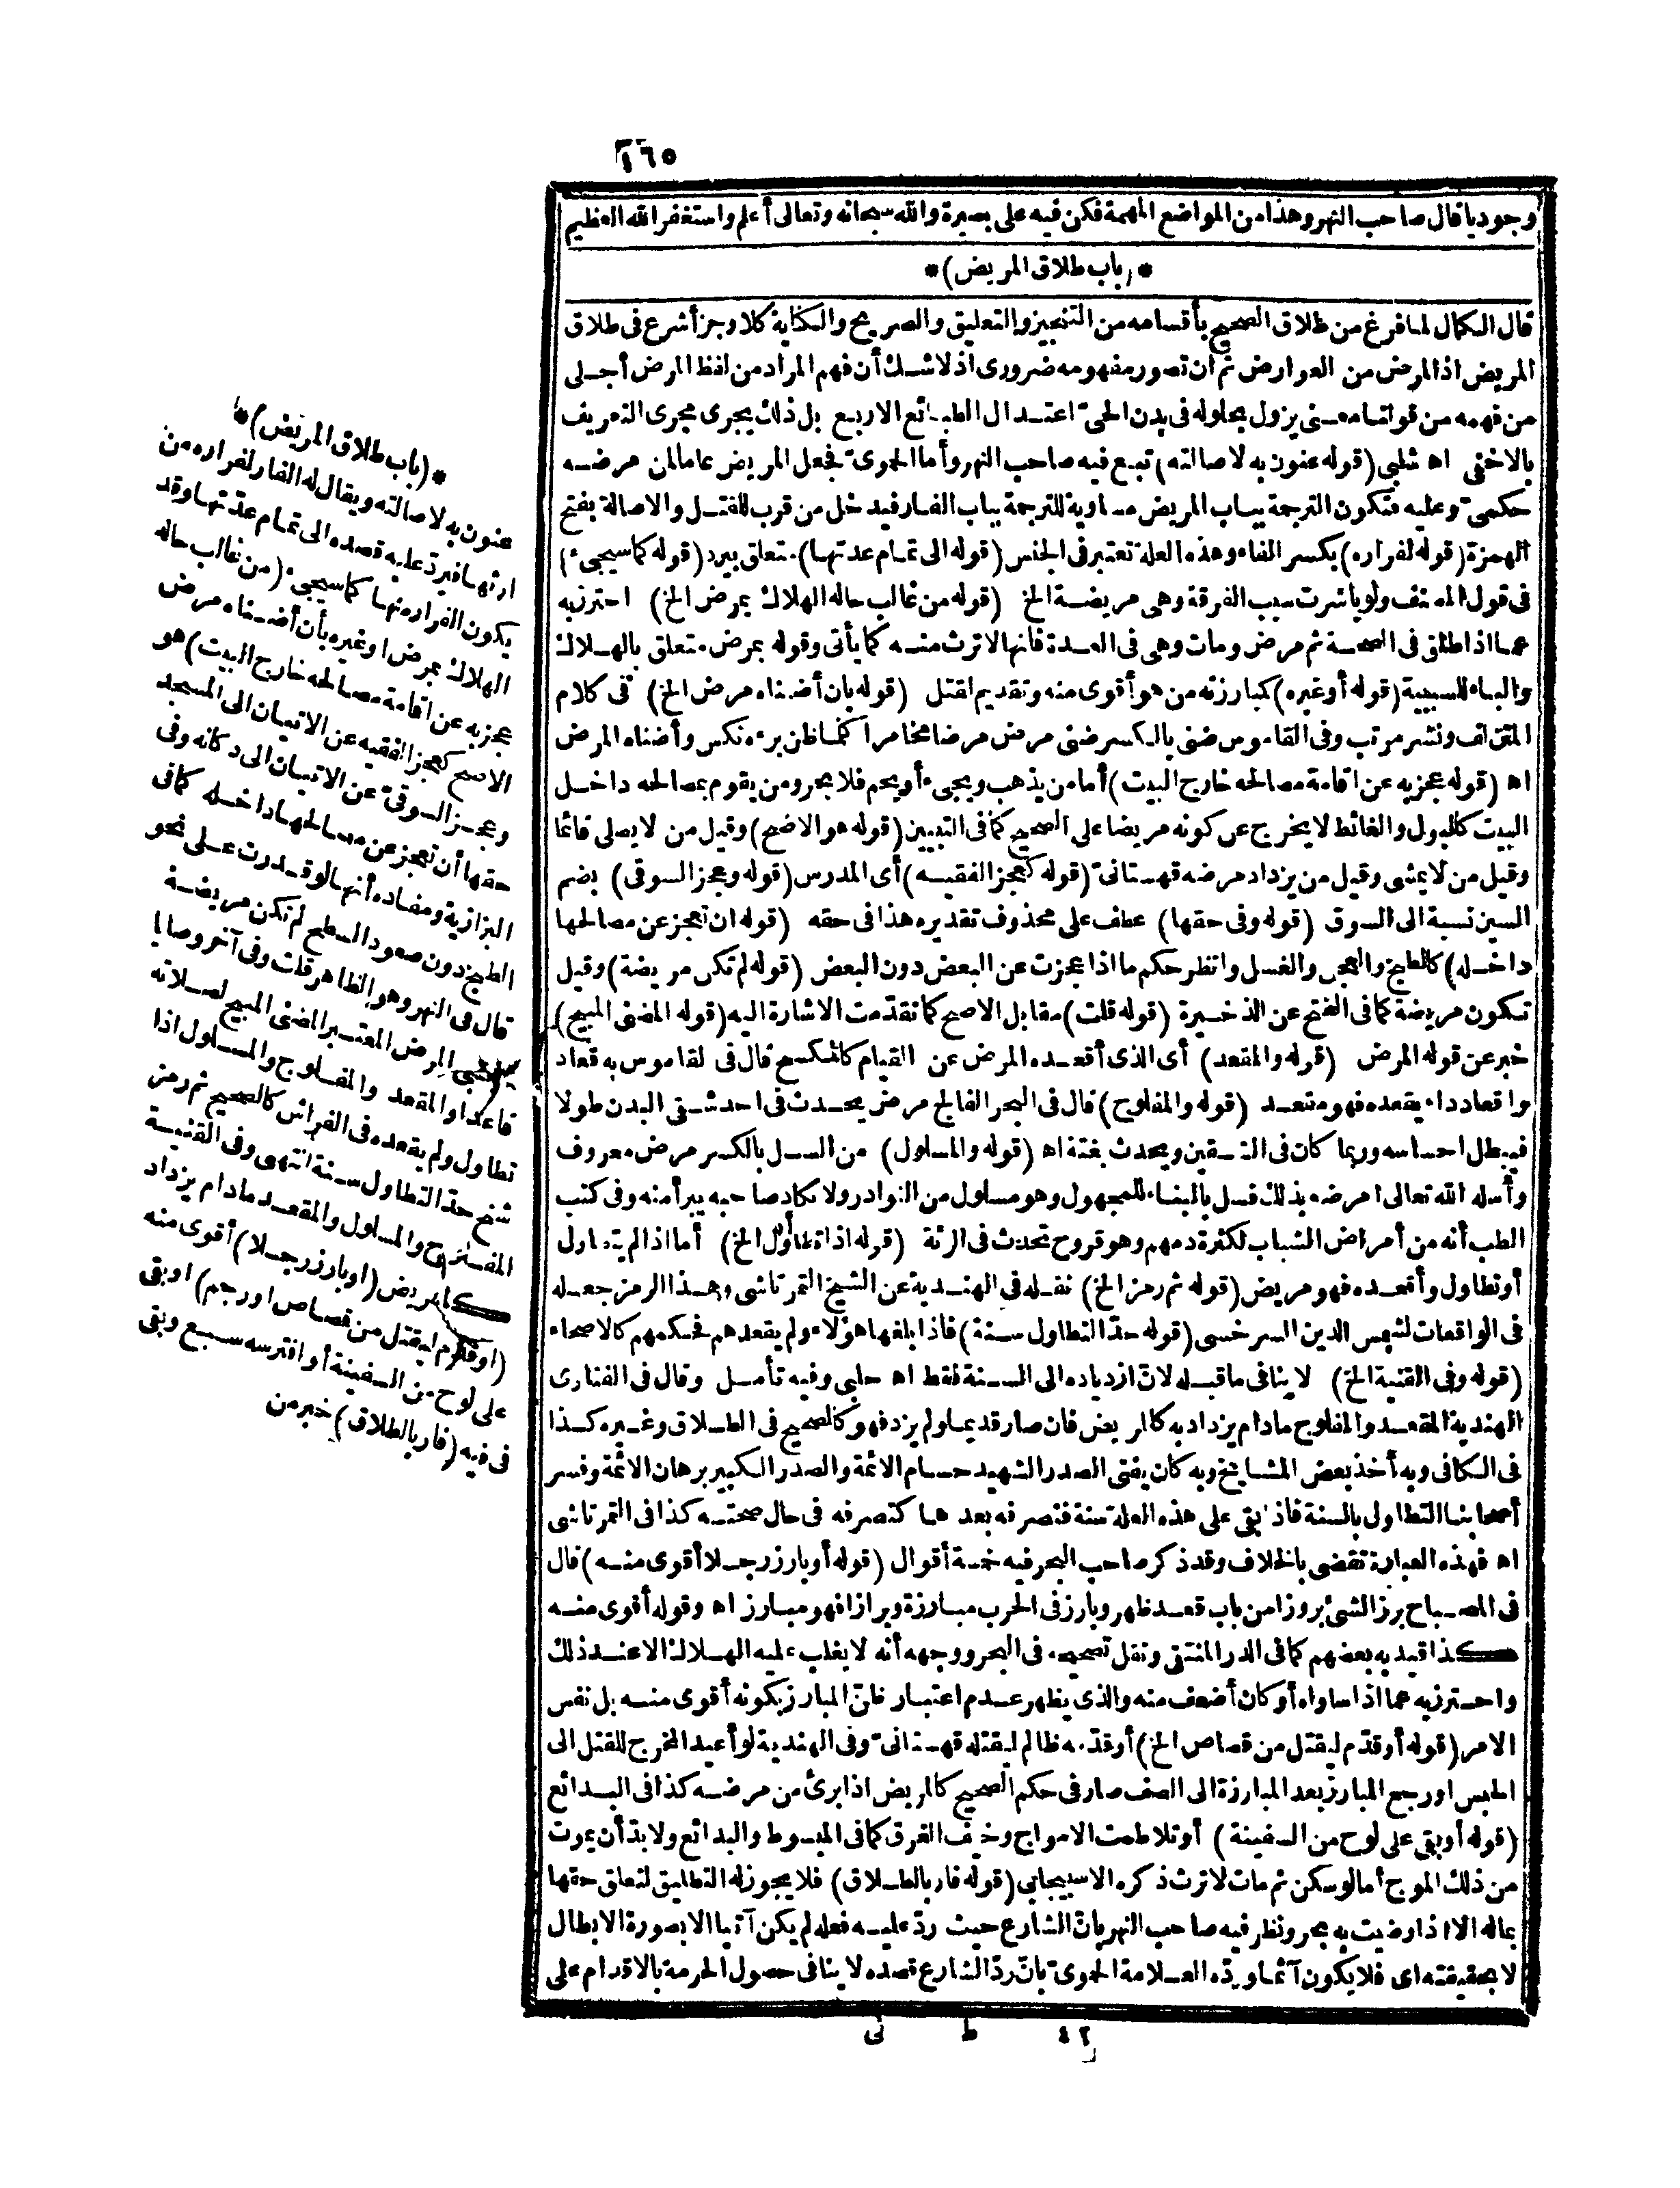 ١٦٥
وجوديا قال صاحب النهر وهذا من المواضع المهمة فكن فيه على بصيرة والله سبحانه وتعالى أعلم واستغفر الله العظيم
* (باب طلاق المريض) *
قال الكمال لما فرغ من طلاق الصحيح بأقسامه من التنجيز والتعليق والصريح والكناية كلا وجزأ شرع فى طلاق
المريض اذ المرض من العوارض ثم ان تصور مفهومه ضرورى اذ لا شك أن فهم المراد من لفظ المرض أجلى
من فهمه من قولنا معنى يزول بحلوله فى بدن الحى اعتدال الطبائع الاربع بل ذلك يجرى مجرى التعريف
بالاخفى اه شلبى (قوله عنون به لاصالته) تبع فيه صاحب النهر وأما الحموى فجعل المريض عاما لمن مرضه
حكمى وعليه فتكون الترجمة بباب المريض مساوية للترجمة بباب الفار فيدخل من قرب للقتل والاصالة بفتح
الهمزة (قوله لفراره) بكسر الفاء وهذه العلة تعتبر فى الجنس (قوله الى تمام عدتها) متعلق بيرد (قوله كما سيجىء)
فى قول المصنف ولو باشرت سبب الفرقة وهى مريضة الخ (قوله من غالب حاله الهلاك بمرض الخ) احترز به
عما اذا طلق فى الصحة ثم مرض ومات وهى فى العدة فانها لا ترث منه كما يأتى وقوله بمرض متعلق بالهلاك
والباء للسببية (قوله أو غيره) كمبارزته من هو أقوى منه وتقديم لقتل (قوله بان أضناه مرض الخ) فى كلام
المتن لف ونشر مرتب وفى القاموس ضنى بالكسر ضنى مرض مرضا مخامرا كلما ظن برءه نكس وأضناه المرض
اه (قوله عجز به عن اقامة مصالحه خارج البيت) أما من يذهب ويجىء أو يحم فلا بحر ومن يقوم بمصالحه داخل
البيت كالبول والغائط لا يخرج عن كونه مريضا على الصحيح كما فى التبيين (قوله هو الاصح) وقيل من لا يصلى قائما
وقيل من لا يمشى وقيل من يزداد مرضه قهستانى (قوله كعجز الفقيه) أى المدرس (قوله وعجز السوقى) بضم
السين نسبة الى السوق (قوله وفى حقها) عطف على محذوف تقديره هذا فى حقه (قوله ان تعجز عن مصالحها
داخله) كالطبخ والعجن والغسل وانظر حكم ما اذا عجزت عن البعض دون البعض (قوله لم تكن مريضة) وقيل
تكون مريضة كما فى الفتح عن الذخيرة (قوله قلت) مقابل الاصح كما تقدمت الاشارة اليه (قوله المضنى المبيح)
خبر عن قوله المرض (قوله والمقعد) أى الذى أقعده المرض عن القيام كالمكسح قال فى القاموس به قعاد
واقعاد داء يقعده فهو مقعد (قوله والمفلوج) قال فى البحر الفالج مرض يحدث فى احد شقى البدن طولا
فيبطل احساسه وربما كان فى الشقين ويحدث بغتة اه (قوله والمسلول) من السل بالكسر مرض معروف
وأسله الله تعالى امرضه بذلك فسل بالبناء للمجهول وهو مسلول من النوادر ولا يكاد صاحبه يبرأ منه وفى كتب
الطب أنه من أمراض الشباب لكثرة دمهم وهو قروح تحدث فى الرئة (قوله اذا تطاول الخ) أما اذا لم يتطاول
أو تطاول وأقعده فهو مريض (قوله ثم رمز الخ) نقله فى الهندية عن الشيخ التمرتاشى وهذا الرمز جعله
فى الواقعات لشمس الدين السرخسى (قوله حد التطاول سنة) فاذا بلغها هؤلاء ولم يقعدهم فحكمهم كالاصحاء
(قوله وفى القنية الخ) لا ينافى ما قبله لان ازدياده الى السنة فقط اه حلبى وفيه تأمل وقال فى الفتارى
الهندية المقعد والمفلوج مادام يزداد به كالمريض فان صار قديما ولم يزد فهو كالصحيح فى الطلاق وغيره كذا
فى الكافى وبه أخذ بعض المشايخ وبه كان يفتى الصدر الشهيد حسام الائمة والصدر الكبير برهان الائمة وفسر
أصحابنا التطاول بالسنة فاذا بقى على هذه العلة سنة فتصرفه بعدها كتصرفه فى حال صحته كذا فى التمرتاشى
اه فهذه العبارة تقضى بالخلاف وقد ذكر صاحب البحر فيه خمسة أقوال (قوله أو بارز رجلا أقوى منه) قال
فى المصباح برز الشئ بروزا من باب قعد ظهر وبارز فى الحرب مبارزة وبرازا فهو مبارز اه وقوله أقوى منه
كذا قيد به بعضهم كما فى الدر المنتقى ونقل تصحيحه فى البحر ووجهه أنه لا يغلب عليه الهلاك الا عند ذلك
واحترز به عما اذا ساواه أو كان أضعف منه والذى يظهر عدم اعتبار ظن المبارز بكونه أقوى منه بل نفس
الامر (قوله أو قدم ليقتل من قصاص الخ) أو قدمه ظالم ليقتله قهستانى وفى الهندية لو أعيد المخرج للقتل الى
الحبس او رجع المبارز بعد المبارزة الى الصف صار فى حكم الصحيح كالمريض اذا برئ من مرضه كذا فى البدائع
(قوله أو بقى على لوح من السفينة) أو تلاطمت الامواج وخيف الغرق كما فى المبسوط والبدائع ولا بد أن يموت
من ذلك الموج أما لو سكن ثم مات لا ترث ذكره الاسبيجابى (قوله فار بالطلاق) فلا يجوز له التطليق لتعلق حقها
بماله الا اذا رضيت به بحر ونظر فيه صاحب النهر بان الشارع حيث رد عليه فعله لم يكن آتيا الا بصورة الابطال
لا بحقيقته اى فلا يكون آثما ورده العلامة الحموى بان رد الشارع قصده لا ينافى حصول الحرمة بالاقدام على
٤٢ ط نى
* (باب طلاق المريض) *
عنون به لاصالته ويقال له الفار لفراره من
ارثها فيرد عليه قصده الى تمام عدتها وقد
يكون الفرار منها كما سيجىء (من غالب حاله
الهلاك بمرض او غيره بأن أضناه مرض
عجز به عن اقامة مصالحه خارج البيت) هو
الاصح كعجز الفقيه عن الاتيان الى المسجد
وعجز السوقى عن الاتيان الى دكانه وفى
حقها أن تعجز عن مصالحها داخله كما فى
البزازية ومفاده أنها لو قدرت على نحو
الطبخ دون صعود السطح لم تكن مريضة
قال فى النهر وهو الظاهر قلت وفى آخر وصايا
المرض المعتبر المضنى المبيح لصلاته
قاعدا والمقعد والمفلوج والمسلول اذا
تطاول ولم يقعده فى الفراش كالصحيح ثم رمز
شح حد التطاول سنة انتهى وفى القنية
المفلوج والمسلول والمقعد مادام يزداد
كالمريض (او بارز رجلا) أقوى منه
(او قدم ليقتل من قصاص او رجم) او بقى
على لوح من السفينة أو افترسه سبع وبقى
فى فيه (فار بالطلاق) خبر من